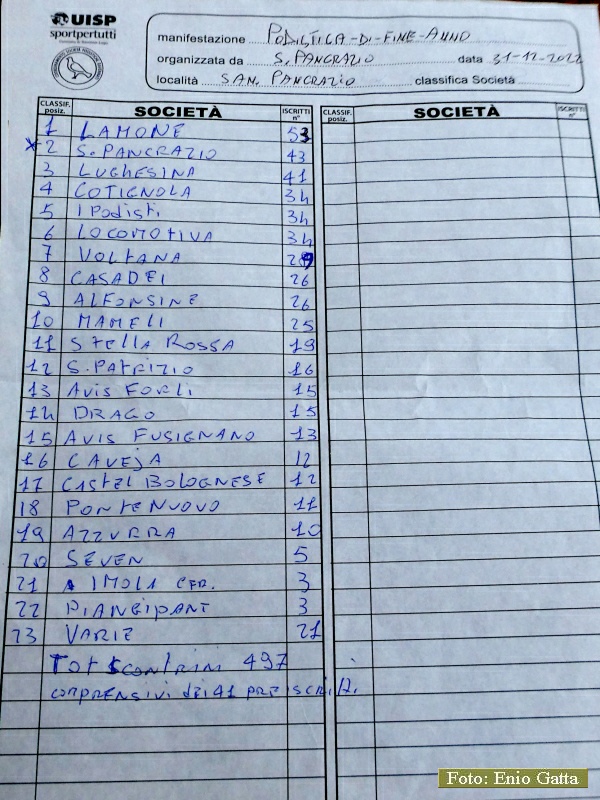 UISP
sportpertutti
manifestazione PODISTICA-DI-FINE-ANNO
organizzata da S. PANCRAZIO data 31-12-2022
località SAN PANCRAZIO classifica Società
CLASSIF. posiz. SOCIETÀ ISCRITTI n° CLASSIF. posiz. SOCIETÀ ISCRITTI n°
1 LAMONE 53
x2 S. PANCRAZIO 43
3 LUGHESINA 41
4 COTIGNOLA 34
5 I Podisti 34
6 LOCOMOTIVA 34
7 VOLTANA
8 CASADEI 26
9 ALFONSINE 26
10 MAMELI 25
11 Stella Rossa 19
12 S. PATRIZIO 16
13 AVIS FORLI 15
14 DRAGO 15
15 AVIS FUSIGNANO 13
16 CAVEJA 12
17 CASTEL BOLOGNESE 12
18 PONTENUOVO 11
19 AZZURRA 10
20 SEVEN 5
21 IMOLA CER. 3
22 PIANGIPANT 3
23 VARIE 21
Tot Scontrini 497
comprensivi dei 41 preiscritti.
Foto: Enio Gatta